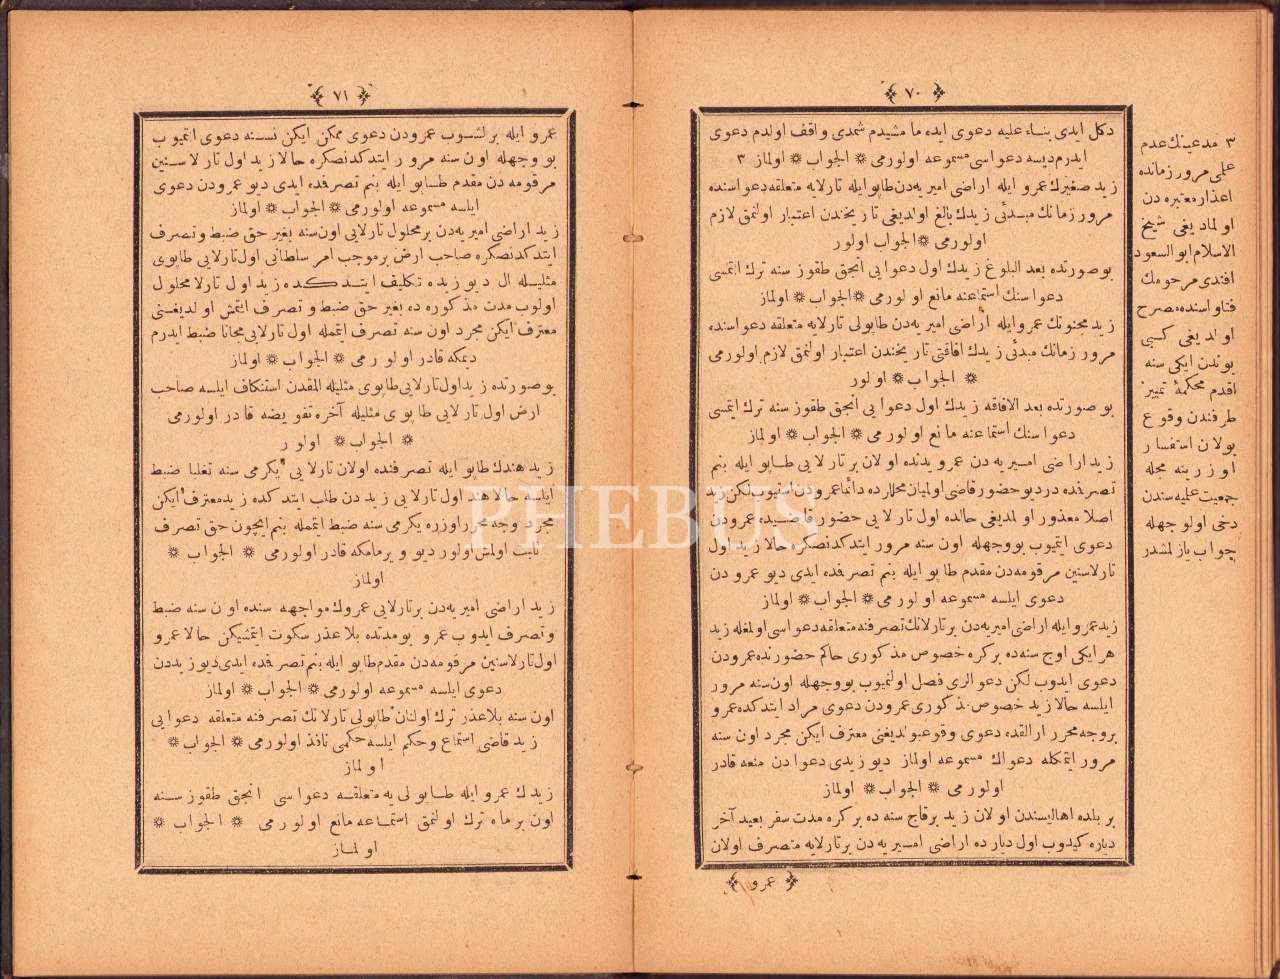 ٧٠
دكل ايدى بناء عليه دعوى ايده ما مشيدم شمدى واقف اولدم دعوى
ايدرم ديسه دعواسى مسموعه اولورمى ❊ الجواب ❊ اولماز ٣
زيد صغيرك عمرو ايله اراضى اميريه‌دن طاپو ايله تارلايه متعلقه دعواسنده
مرور زمانك مبدئى زيدك بالغ اولديغى تاريخندن اعتبار اولنمق لازم
اولورمى ❊ الجواب اولور
بوصورتده بعد البلوغ زيدك اول دعوايى انجق طقوز سنه ترك ايتمسى
دعواسنك استماعنه مانع اولورمى ❊ الجواب ❊ اولماز
زيد مجنونك عمرو ايله اراضى اميريه‌دن طاپولى تارلايه متعلقه دعواسنده
مرور زمانك مبدئى زيدك افاقتى تاريخندن اعتبار اولنمق لازم اولورمى
❊ الجواب ❊ اولور
بوصورتده بعد الافاقه زيدك اول دعوايى انجق طقوز سنه ترك ايتمسى
دعواسنك استماعنه مانع اولورمى ❊ الجواب ❊ اولماز
زيد اراضى اميريه دن عمرو يدنده اولان بر تارلايى طاپو ايله بنم
تصرفمده در ديو حضور قاضى اولميان محللرده دائما عمرودن استيوب لكن زيد
اصلا معذور اولمديغى حالده اول تارلايى حضور قاضيده عمرودن
دعوى ايتميوب بووجهله اون سنه مرور ايتدكدنصكره حالا زيد اول
تارلاسنين مرقومه‌دن مقدم طاپو ايله بنم تصرفمده ايدى ديو عمرودن
دعوى ايلسه مسموعه اولورمى ❊ الجواب ❊ اولماز
زيد عمرو ايله اراضى اميريه‌دن بر تارلانك تصرفنه متعلقه دعواسى اولمغله زيد
هر ايكى اوچ سنه‌ده بركره خصوص مذكورى حاكم حضورنده عمرودن
دعوى ايدوب لكن دعوالرى فصل اولنميوب بووجهله اون سنه مرور
ايلسه حالا زيد خصوص مذكورى عمرودن دعوى مراد ايتدكده عمرو
بروجه محرر ارالقده دعوى وقوعبولديغنى معترف ايكن مجرد اون سنه
مرور ايتمكله دعواك مسموعه اولماز ديو زيدى دعوادن منعه قادر
اولورمى ❊ الجواب ❊ اولماز
بر بلده اهاليسندن اولان زيد بر قاچ سنه ده بركره مدت سفر بعيد آخر
دياره كيدوب اول ديارده اراضى اميريه دن بر تارلايه متصرف اولان
عمرو
٣ مدعينك عدم
على مرور زمانده
اعذار معتبره دن
اولماديغى شيخ
الاسلام ابو السعود
افندى مرحومك
فتاواسنده مصرح
اولديغى كبى
بوندن ايكى سنه
اقدم محكمهٔ تمييز
طرفندن وقوع
بولان استفسار
اوزرينه مجله
جمعيت عليه سندن
دخى اولوجهله
جواب يازلمشدر
٧١
عمرو ايله برلشوب عمرودن دعوى ممكن ايكن نسنه دعوى ايتميوب
بووجهله اون سنه مرور ايتدكدنصكره حالا زيد اول تارلاسنين
مرقومه دن مقدم طاپو ايله بنم تصرفمده ايدى ديو عمرودن دعوى
ايلسه مسموعه اولورمى ❊ الجواب ❊ اولماز
زيد اراضى اميريه‌دن بر محلول تارلايى اون سنه بغير حق ضبط وتصرف
ايتدكدنصكره صاحب ارض بر موجب امر سلطانى اول تارلايى طاپوى
مثليله آل ديو زيده تكليف ايتدكده زيد اول تارلا محلول
اولوب مدت مذكوره ده بغير حق ضبط وتصرف ايتمش اولديغنى
معترف ايكن مجرد اون سنه تصرف ايتمكله اول تارلايى مجانا ضبط ايدرم
ديمكه قادر اولورمى ❊ الجواب ❊ اولماز
بوصورتده زيد اول تارلايى طاپوى مثليله المقدن استنكاف ايلسه صاحب
ارض اول تارلايى طاپوى مثليله آخره تفويضه قادر اولورمى
❊ الجواب ❊ اولور
زيد هندك طاپو ايله تصرفنده اولان تارلايى يكرمى سنه تغلبا ضبط
ايلسه حالا هند اول تارلايى زيددن طلب ايتدكده زيد معترف ايكن
مجرد وجه محرر اوزره يكرمى سنه ضبط ايتمكله بنم ايچون حق تصرف
ثابت اولمش اولور ديو ويرمامكه قادر اولورمى ❊ الجواب ❊
اولماز
زيد اراضى اميريه‌دن بر تارلايى عمروك مواجهه سنده اون سنه ضبط
وتصرف ايدوب عمرو بومدتده بلا عذر سكوت ايتمشيكن حالا عمرو
اول تارلاسنين مرقومه‌دن مقدم طاپو ايله بنم تصرفمده ايدى ديو زيددن
دعوى ايلسه مسموعه اولورمى ❊ الجواب ❊ اولماز
اون سنه بلا عذر ترك اولنان طاپولى تارلانك تصرفنه متعلقه دعوايى
زيد قاضى استماع وحكم ايلسه حكمى نافذ اولورمى ❊ الجواب ❊
اولماز
زيدك عمرو ايله طاپولى يه متعلقه دعواسى انجق طقوز سنه
اون بر ماه ترك اولنمق استماعه مانع اولورمى ❊ الجواب ❊
اولماز
PHEBUS